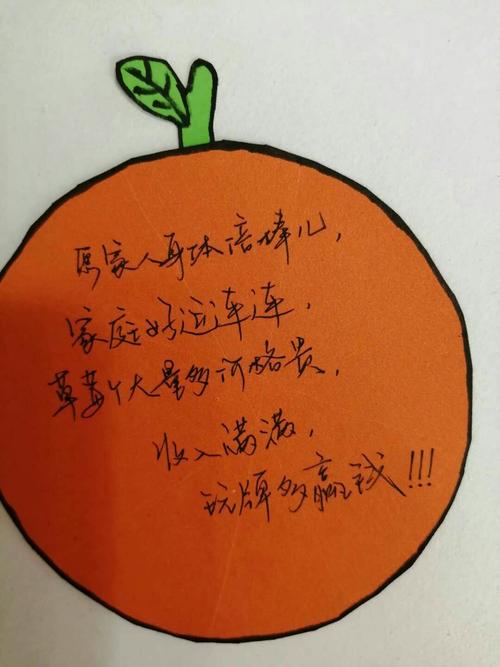 愿家人身体倍棒儿,
家庭好运连连,
草莓个大量多价格贵,
收入满满,
玩牌多赢钱!!!